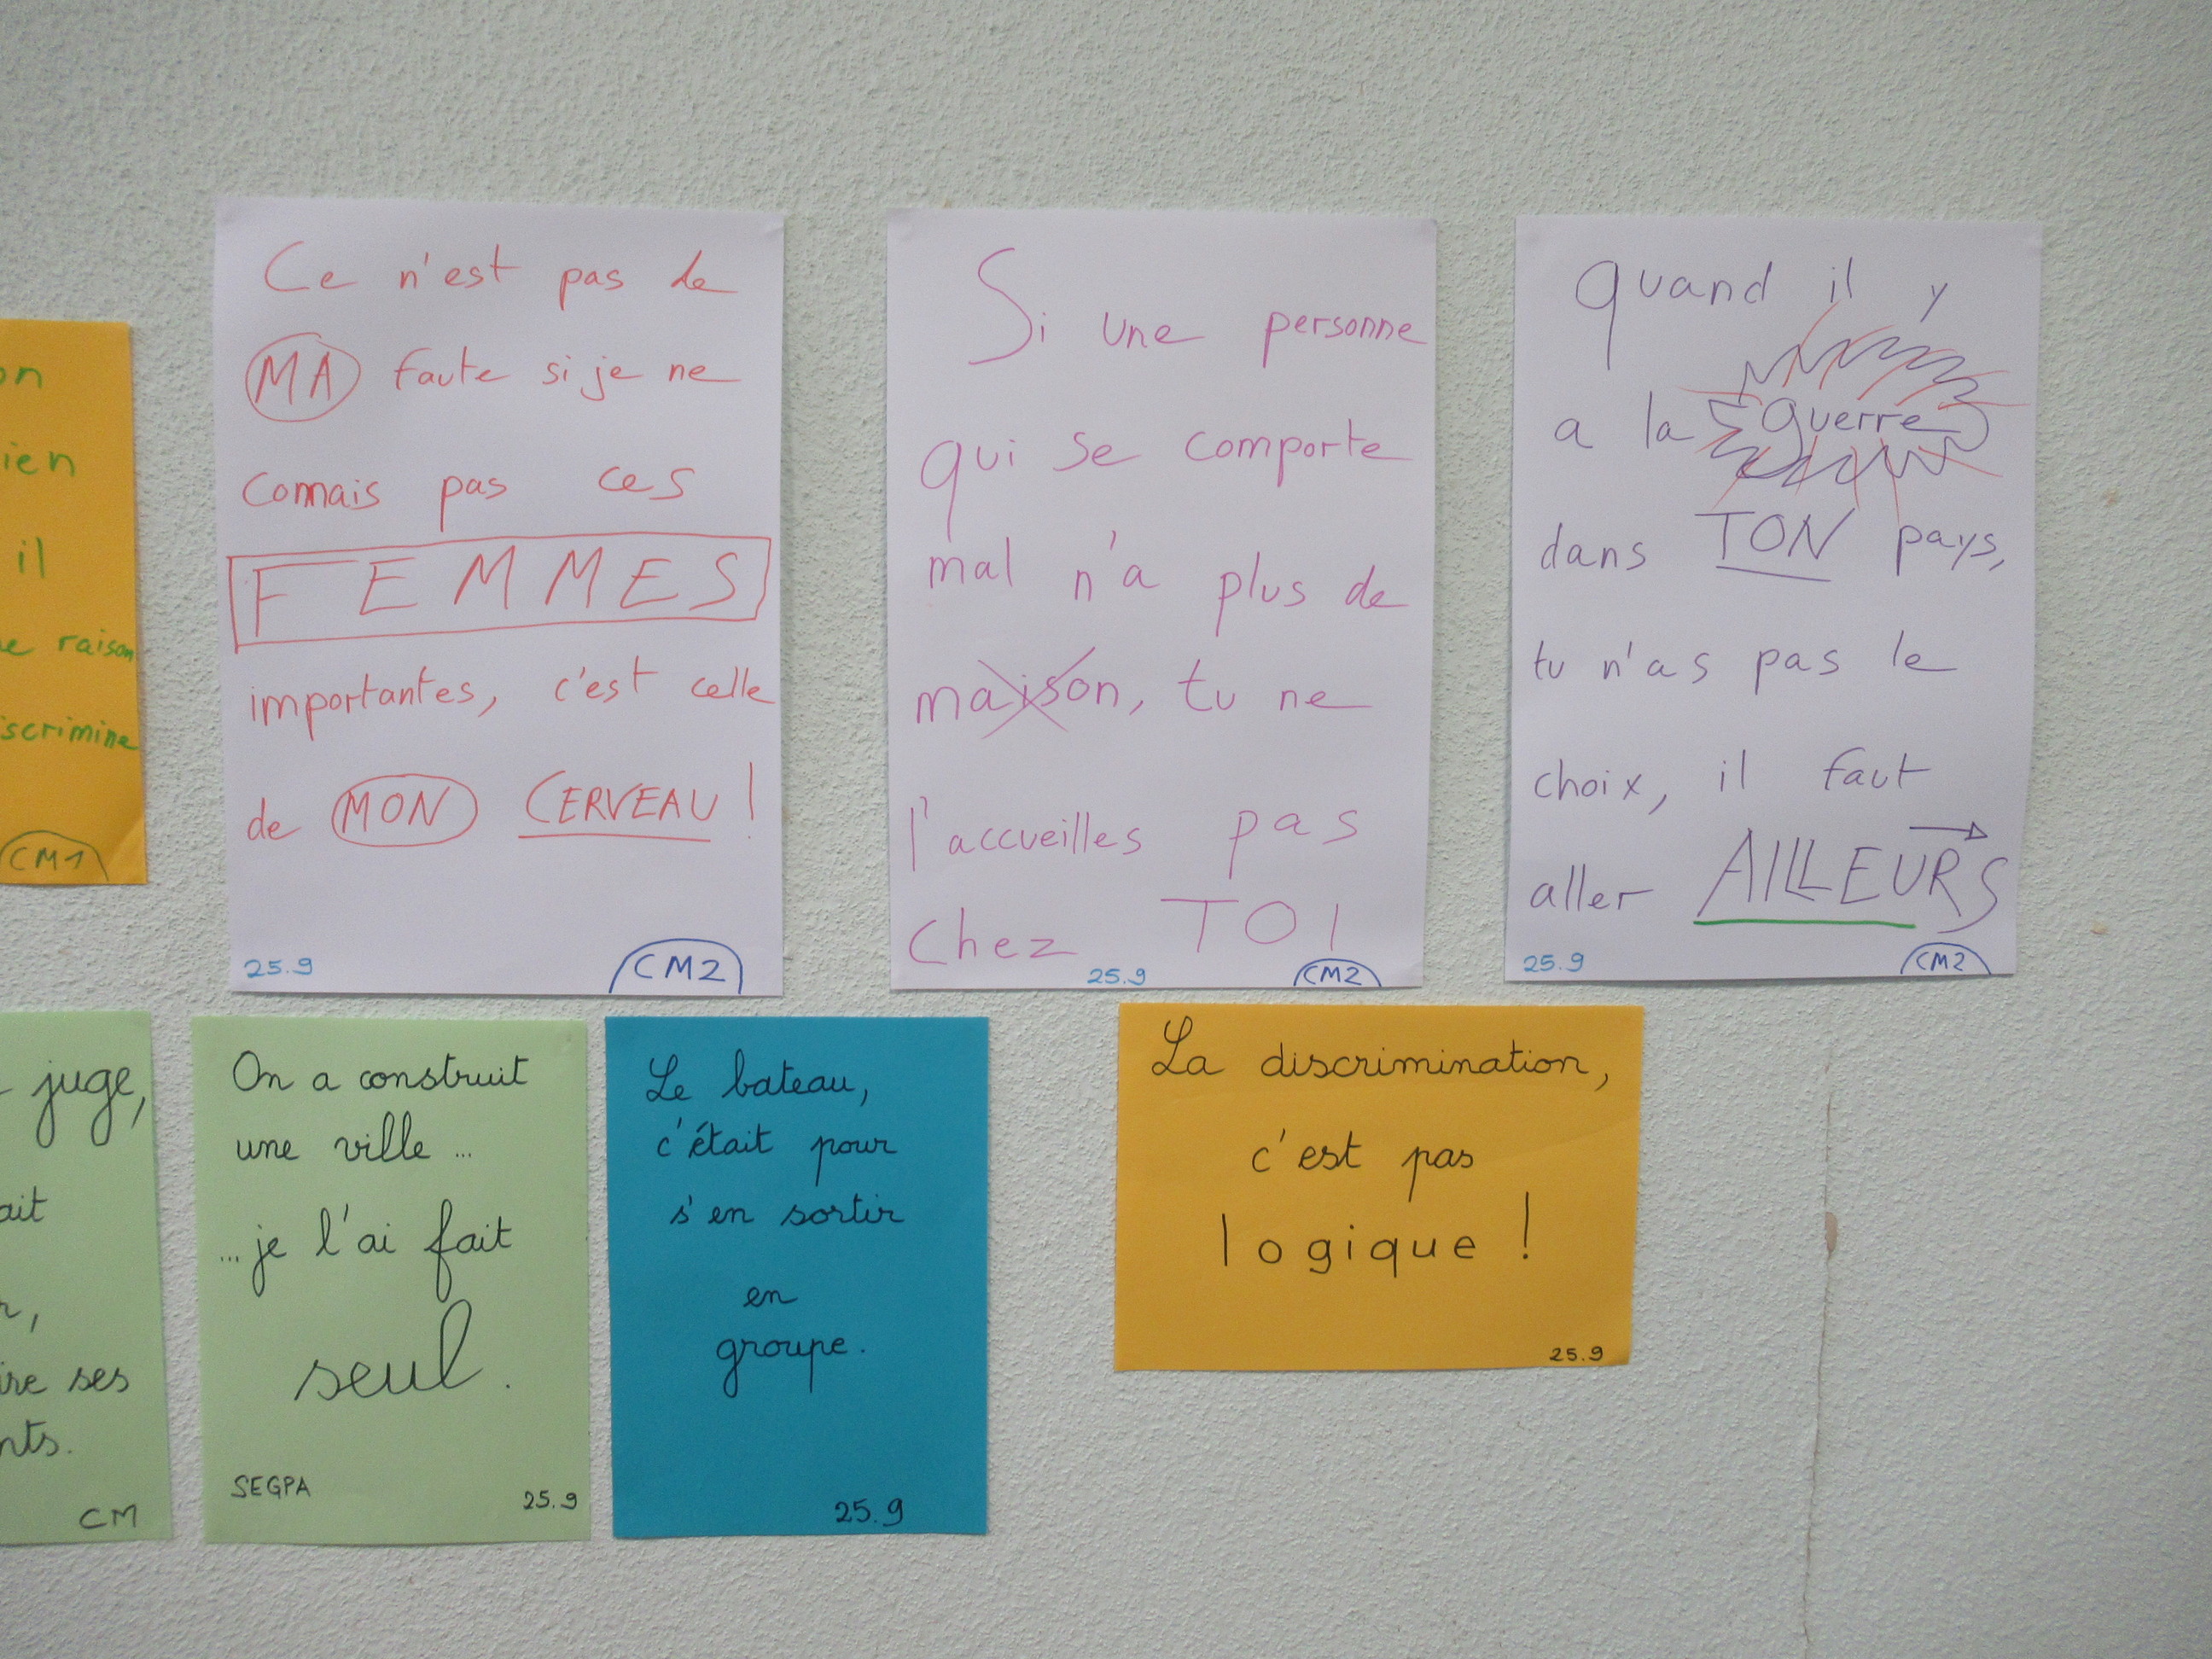 on
ien
il
raison
scrimine
CM1
Ce n'est pas de
MA faute si je ne
connais pas ces
FEMMES
importantes, c'est celle
de MON CERVEAU !
25.9 CM2
Si une personne
qui se comporte
mal n'a plus de
maison, tu ne
l'accueilles pas
Chez TOI
25.9 CM2
quand il y
a la guerre
dans TON pays,
tu n'as pas le
choix, il faut
aller AILLEURS
25.9 CM2
juge,
ait
r,
ire ses
nts.
CM
On a construit
une ville ...
... je l'ai fait
seul.
SEGPA 25.9
Le bateau,
c'était pour
s'en sortir
en
groupe.
25.9
La discrimination,
c'est pas
logique !
25.9